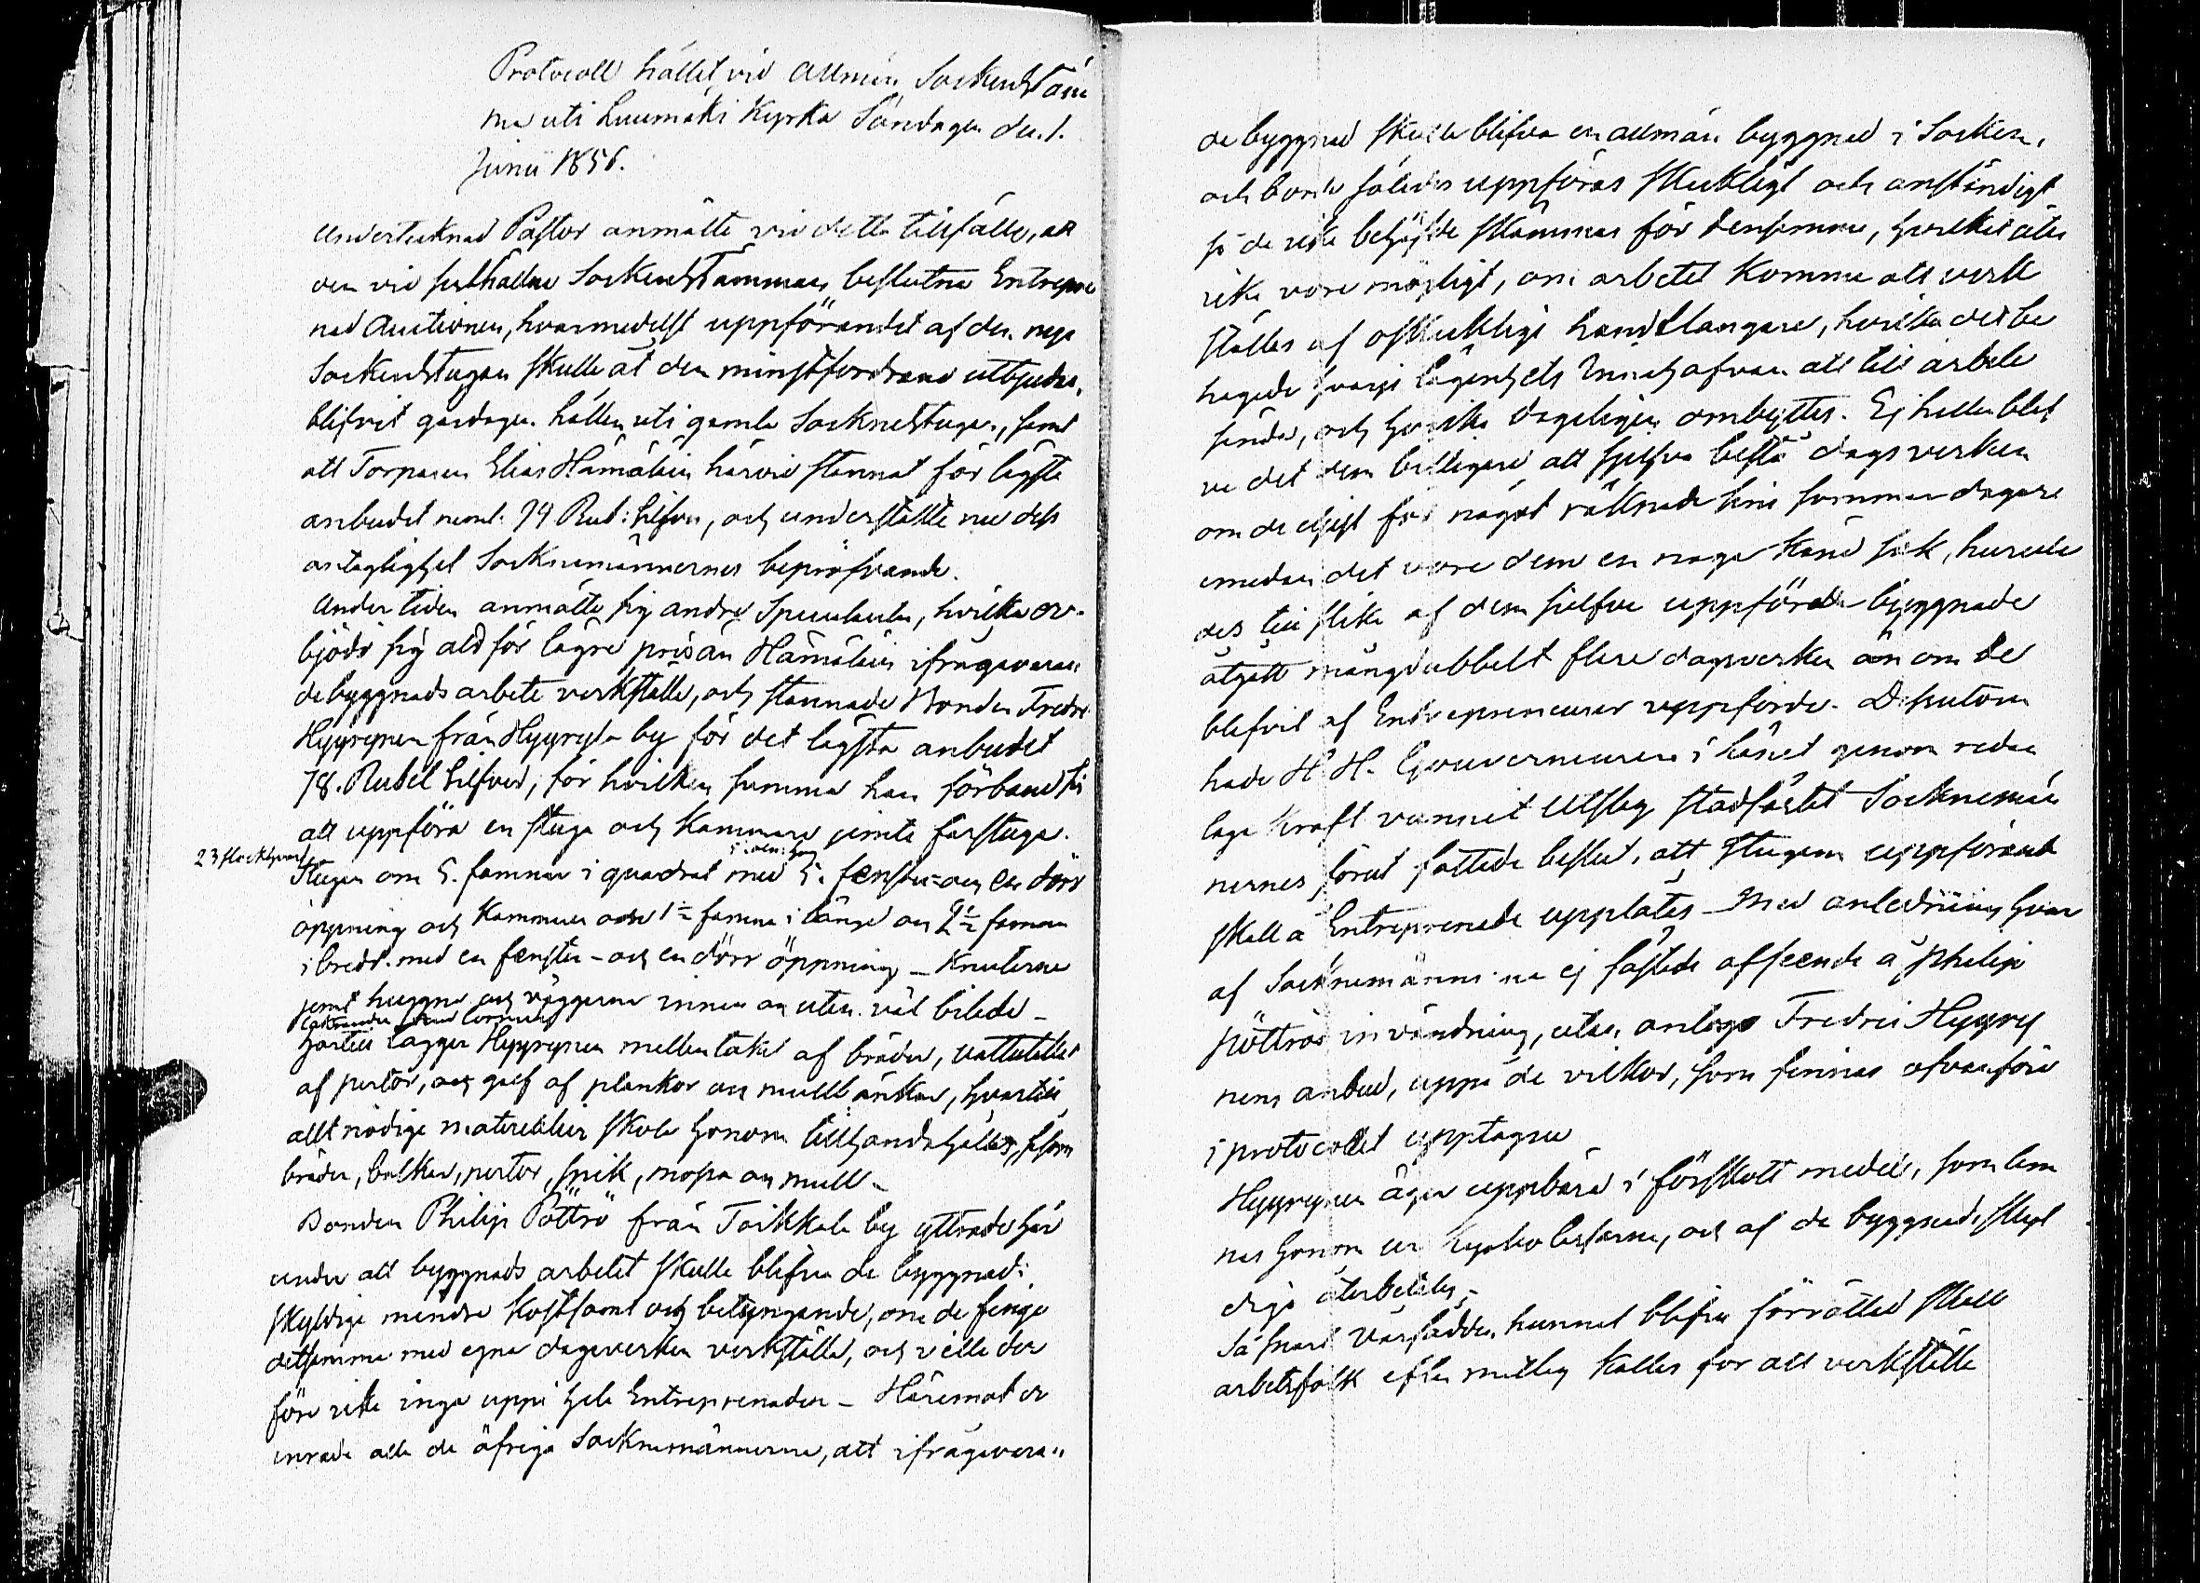 Protocoll hållet vid Allmän Sockenstäm
ma uti Luumäki Kyrka Söndagen den 1.
Junii 1856.
Undertecknad Pastor anmälte vid detta tillfälle, att
den vid sisthållne Sockenstämman beslutna Entrepre
nad Auctionen, hvarmedelst uppförandet af den nya
Sockenstugan skulle åt den minstfordrande utbjudas,
blifvit gårdagen hållen uti gamla Socknestugan, samt
att Torparen Elias Hämäläin härvid stannat för lägsta
anbudet neml. 79 Rub: Silfver, och underställte nu dess
antaglighet Socknemännernes bepröfvande.
Under tiden anmälte sig andre Speculanter, hvilka er-
bjödo sig att för lägre pris än Hämäläin ifrågavaran
de byggnads arbete verkställa, och stannade Bonden Fredric
Hyyrynen från Hyyrylä by för det lägsta anbudet
78. Rubel Silfver, för hvilken summa han förband sig
att uppföra en stuga och Kammare jemte farstuga.
23 stockhvarf
Stugan om 5. famnar i quadrat med 5. fenster- och en dörr
öppning och Kammaren 1½ famn i längd och 2½ famn
i bredd med en fenster- och en dörr öppning - Knutarne
jemt huggne och väggarne innan och utan väl bilade -
Hartill lägger Hyyrynen mellantaket af bräder, vattutaket
af pertor, och golf af plankor och mullbänkar, hvartill
allt nödige materialier skola honom tillhandahållas, såsom
bräder, balkar, pertor, spik, mossa och mull -
Bonden Philip Pöttrö från Toikkala by yttrade här
under att byggnads arbetet skulle blifva de byggnads
skyldige mindre kostsamt och betungande, om de finge
detsamma med egna dagsverken verkställa, och ville der
före icke inga uppå hela Entreprenaden - Häremot er
inrade alla de öfriga Socknemännerne, att ifrågavaran
de byggnad skulle blifva en allmän byggnad i Socken,
och borde således uppföras skickligt och anständigt
så de icke behöfde skämmas för densamma, hvilket åter
icke vore möjligt, om arbetet komme att verk
ställas af oskicklige handtlangare, hvilka det be
hagade hvarje lägenhets Innehafvare att till arbete
sända, och hvilka dageligen ombyttes. Ej heller blef
ve det dem billigare att sjelfva bestå dagsverken
om de eljest för något räknade sine sommardagar
emedan det vore dem en noga känd sak, hurule
des till slika af dem sjelfve uppförde byggnader
åtgått mångdubbelt flere dagsverken än om de
blifvit af Entrepreneurer uppförde. Dessutom
hade H. H. Gouverneuren i länet genom redan
laga Kraft vunnit Utslag stadfästet Socknemän
nernes förut fattade beslut, att stugans uppförande
skall å Entreprenade upplåtas - Med anledning hvar
af Socknemännerne ej fästade afseende å Philip
Pöttrös invändning, utan antogo Fredric Hyyry
nens anbud, uppå de vilkor, som finnas ofvanföre
i protocollet upptagne
Hyyrynen äger uppbära i förskott medel, som läm
nas honom ur Kyrko Cassan, och af de byggnads skyl
dige återbetalas,-
Så snart Vårsådden hunnit blifva förrättad skall
arbetsfolk efter mantal kallas för att verkställa